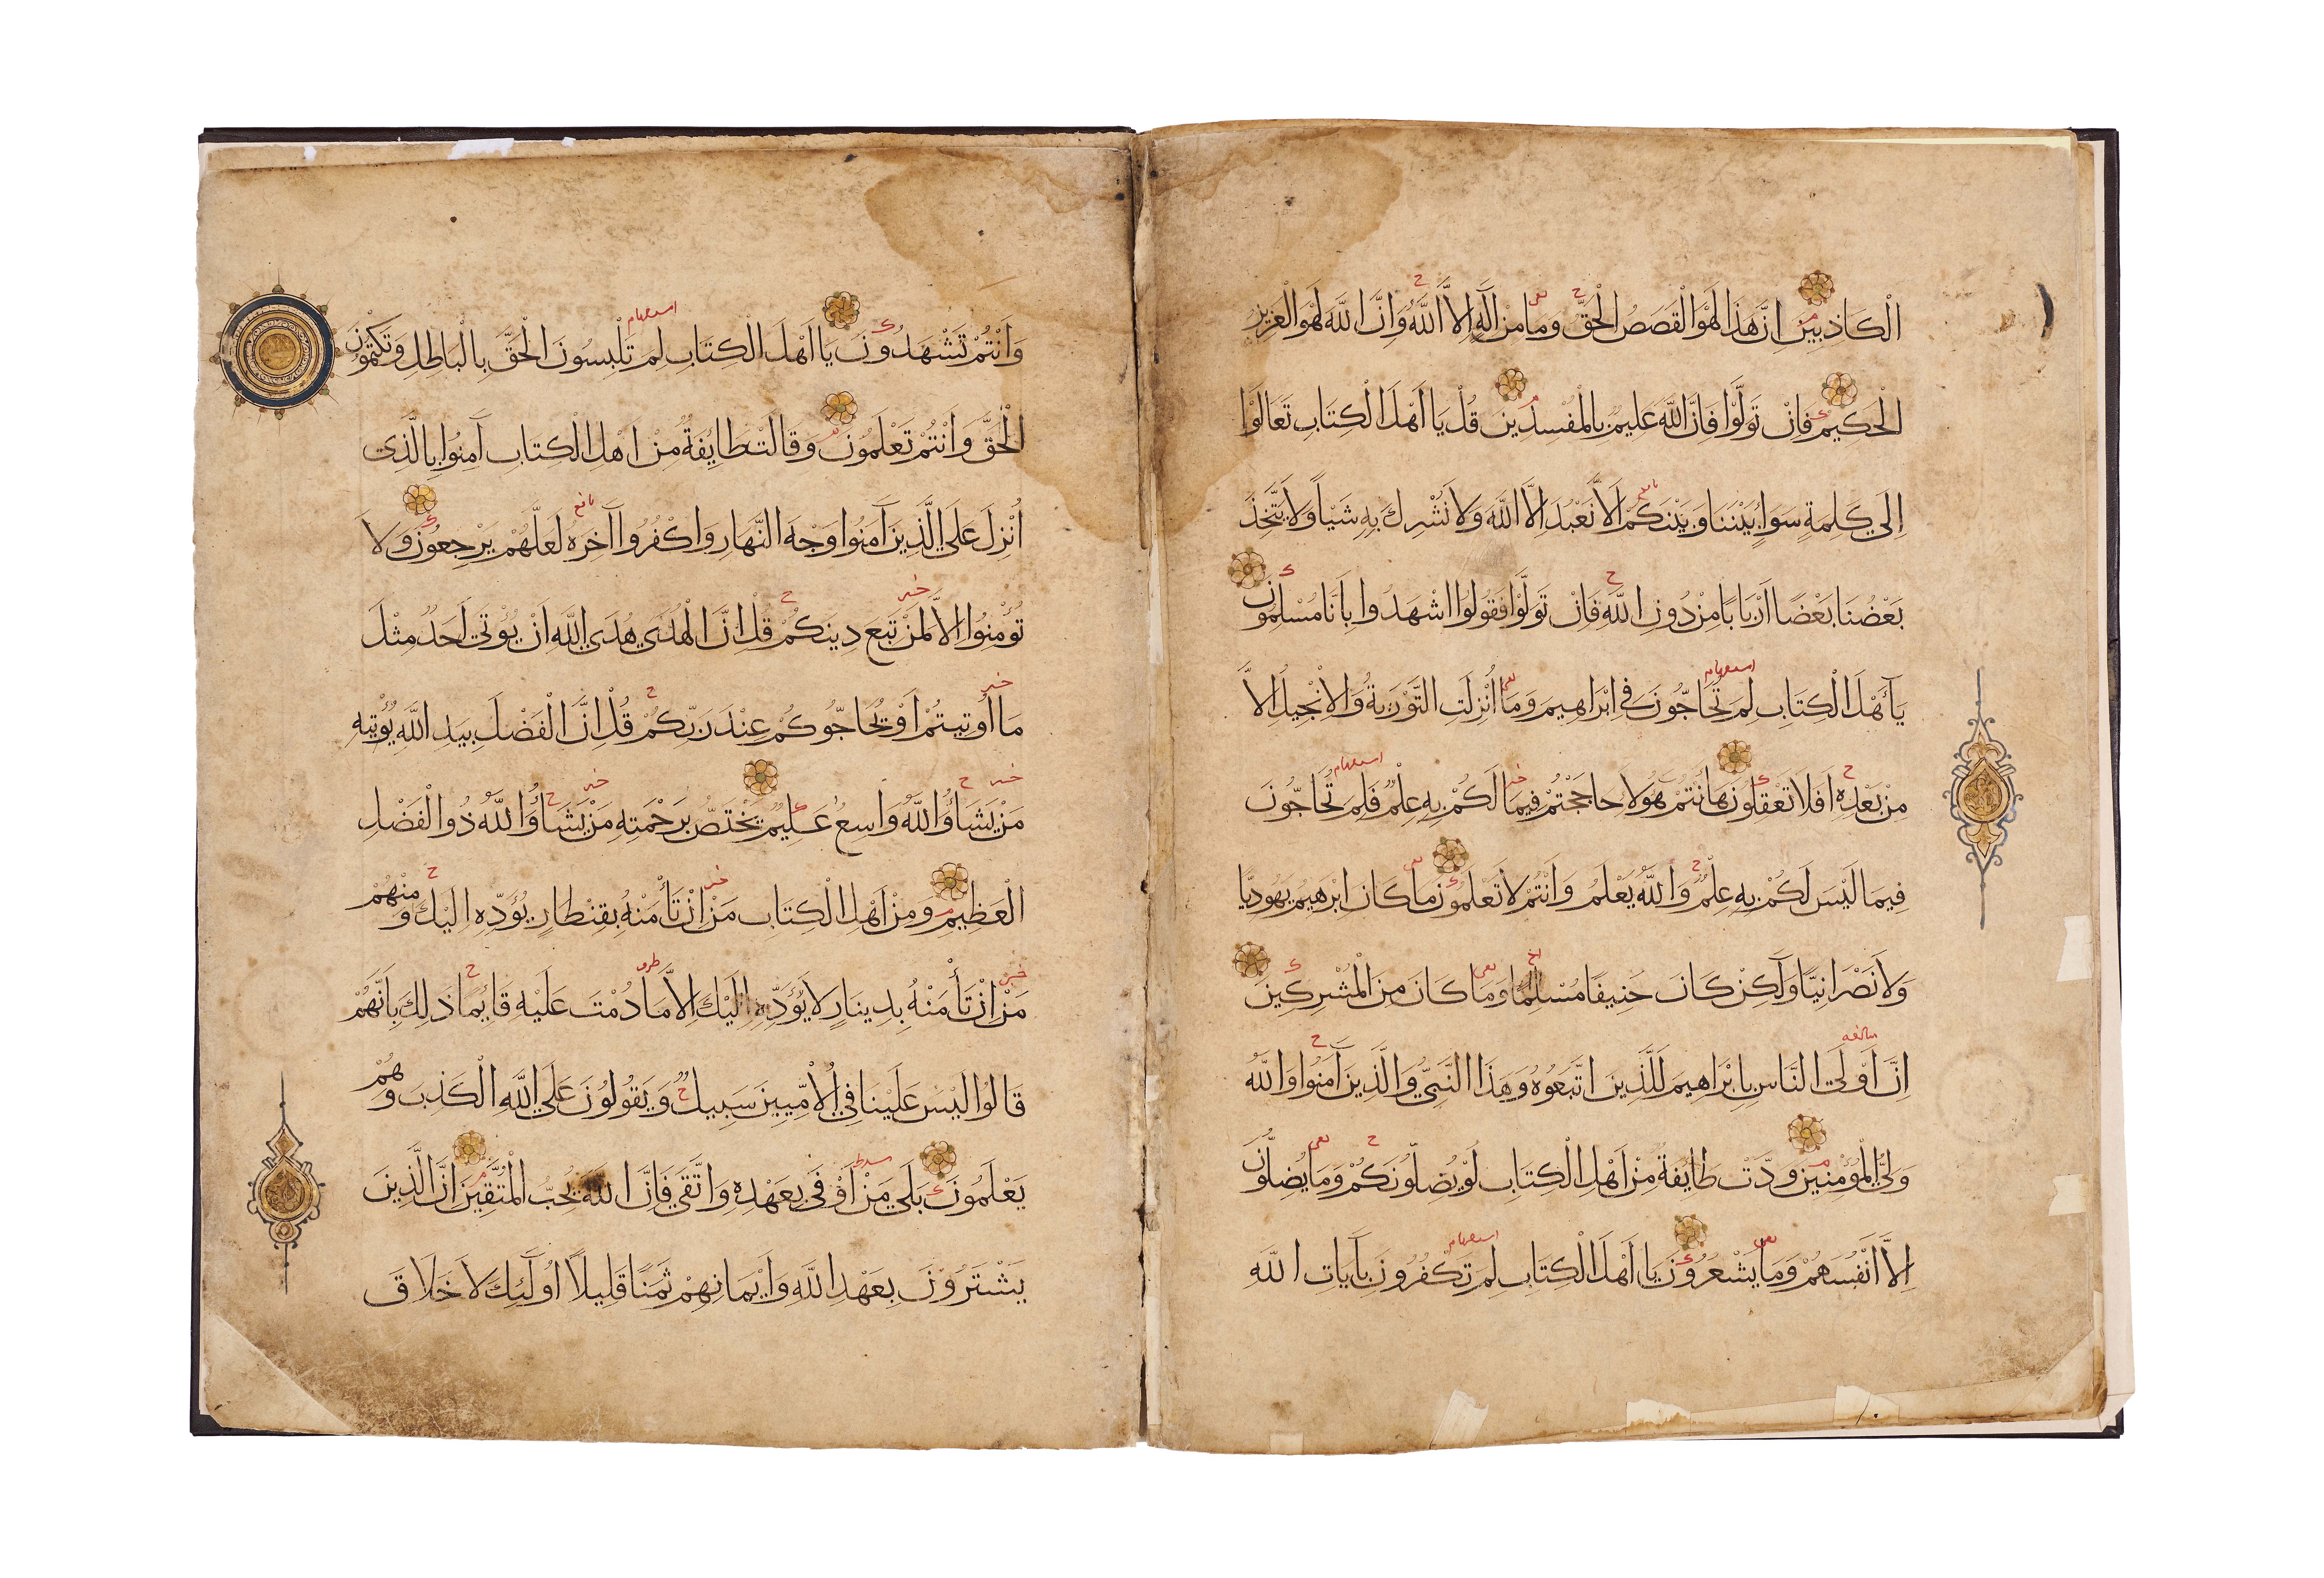 الْكَاذِبِينَ اِنَّ هَذَا لَهْوَ الْقَصَصُ الْحَقُّ وَمَا مِنْ اِلَهٍ اِلاَّ اللَّهُ وَاِنَّ اللَّهَ لَهْوَ الْعَزِيزُ
الْحَكِيمُ فَاِنْ تَوَلَّوْا فَاِنَّ اللَّهَ عَلِيمٌ بِالْمُفْسِدِينَ قُلْ يَا اَهْلَ الْكِتَابِ تَعَالَوْا
اِلَى كَلِمَةٍ سَوَاءٍ بَيْنَنَا وَبَيْنَكُمْ اَلاَّ نَعْبُدَ اِلاَّ اللَّهَ وَلاَ نُشْرِكَ بِهِ شَيْاً وَلاَ يَتَّخِذَ
بَعْضُنَا بَعْضًا اَرْبَابًا مِنْ دُونِ اللَّهِ فَاِنْ تَوَلَّوْا فَقُولُوا اشْهَدُوا بِاَنَّا مُسْلِمُونَ
يَآ اَهْلَ الْكِتَابِ لِمَ تُحَاجُّونَ فِي اِبْرَاهِيمَ وَمَا اُنْزِلَتِ التَّوْرَيةُ وَالاِنْجِيلُ اِلاَّ
مِنْ بَعْدِهِ اَفَلاَ تَعْقِلُونَ هَا اَنْتُمْ هَؤُلاَ حَاجَجْتُمْ فِيمَا لَكُمْ بِهِ عِلْمٌ فَلِمَ تُحَاجُّونَ
فِيمَا لَيْسَ لَكُمْ بِهِ عِلْمٌ وَاللَّهُ يَعْلَمُ وَاَنْتُمْ لاَ تَعْلَمُونَ مَا كَانَ اِبْرَهِيمُ يَهُودِيًّا
وَلاَ نَصْرَانِيًّا وَلَكِنْ كَانَ حَنِيفًا مُسْلِمًا وَمَا كَانَ مِنَ الْمُشْرِكِينَ
اِنَّ اَوْلَى النَّاسِ بِاِبْرَاهِيمَ لَلَّذِينَ اتَّبَعُوهُ وَهَذَا النَّبِيُّ وَالَّذِينَ آمَنُوا وَاللَّهُ
وَلِيُّ الْمُؤْمِنِينَ وَدَّتْ طَائِفَةٌ مِنْ اَهْلِ الْكِتَابِ لَوْ يُضِلُّونَكُمْ وَمَا يُضِلُّونَ
اِلاَّ اَنْفُسَهُمْ وَمَا يَشْعُرُونَ يَا اَهْلَ الْكِتَابِ لِمَ تَكْفُرُونَ بِآيَاتِ اللَّهِ
وَاَنْتُمْ تَشْهَدُونَ يَا اَهْلَ الْكِتَابِ لِمَ تَلْبِسُونَ الْحَقَّ بِالْبَاطِلِ وَتَكْتُمُونَ
الْحَقَّ وَاَنْتُمْ تَعْلَمُونَ وَقَالَتْ طَائِفَةٌ مِنْ اَهْلِ الْكِتَابِ آمِنُوا بِالَّذِى
اُنْزِلَ عَلَى الَّذِينَ آمَنُوا وَجْهَ النَّهَارِ وَاكْفُرُوا آخِرَهُ لَعَلَّهُمْ يَرْجِعُونَ وَلاَ
تُؤْمِنُوا اِلاَّ لِمَنْ تَبِعَ دِينَكُمْ قُلْ اِنَّ الْهُدَى هُدَى اللَّهِ اَنْ يُؤْتَى اَحَدٌ مِثْلَ
مَا اُوتِيتُمْ اَوْ يُحَاجُّوكُمْ عِنْدَ رَبِّكُمْ قُلْ اِنَّ الْفَضْلَ بِيَدِ اللَّهِ يُؤْتِيهِ
مَنْ يَشَاءُ وَاللَّهُ وَاسِعٌ عَلِيمٌ يَخْتَصُّ بِرَحْمَتِهِ مَنْ يَشَاءُ وَاللَّهُ ذُو الْفَضْلِ
الْعَظِيمِ وَمِنْ اَهْلِ الْكِتَابِ مَنْ اِنْ تَأْمَنْهُ بِقِنْطَارٍ يُؤَدِّهِ اِلَيْكَ وَمِنْهُمْ
مَنْ اِنْ تَأْمَنْهُ بِدِينَارٍ لاَ يُؤَدِّهِ اِلَيْكَ اِلاَّ مَا دُمْتَ عَلَيْهِ قَائِمًا ذَلِكَ بِاَنَّهُمْ
قَالُوا لَيْسَ عَلَيْنَا فِي الْاُمِّيِّينَ سَبِيلٌ وَيَقُولُونَ عَلَى اللَّهِ الْكَذِبَ وَهُمْ
يَعْلَمُونَ بَلَى مَنْ اَوْفَى بِعَهْدِهِ وَاتَّقَى فَاِنَّ اللَّهَ يُحِبُّ الْمُتَّقِينَ اِنَّ الَّذِينَ
يَشْتَرُونَ بِعَهْدِ اللَّهِ وَاَيْمَانِهِمْ ثَمَنًا قَلِيلاً اُولَئِكَ لاَ خَلاَقَ